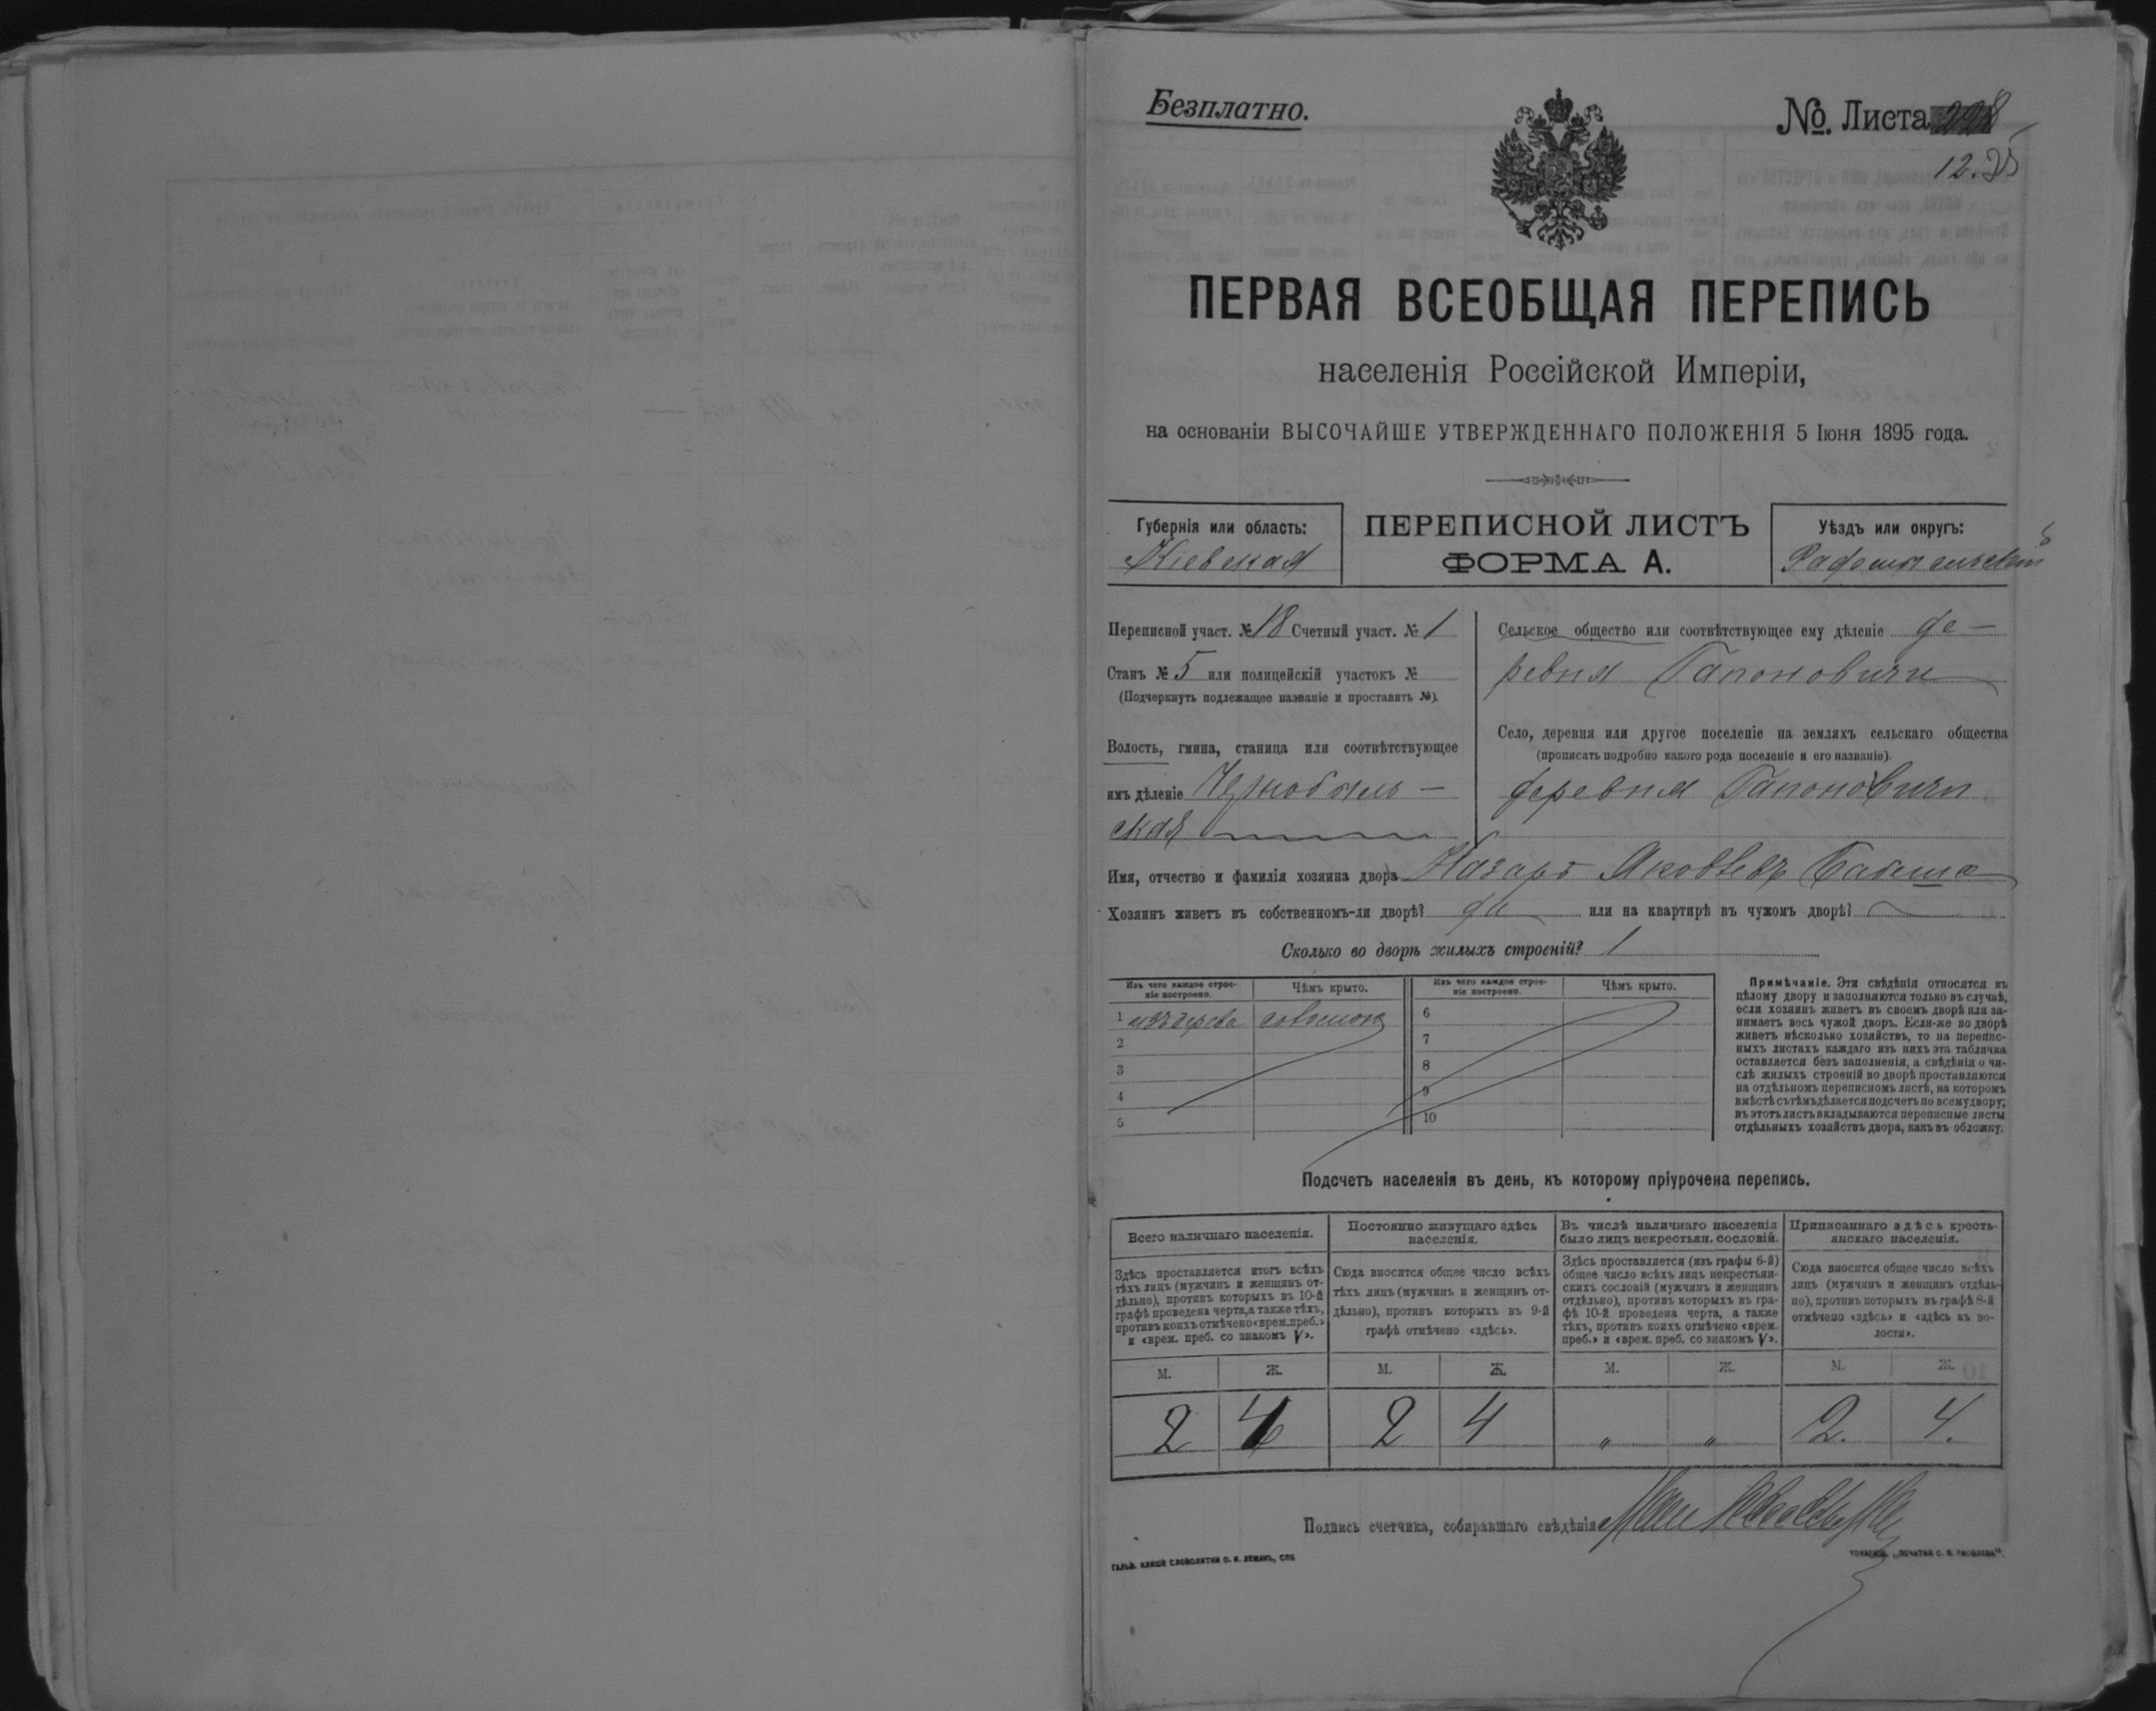 Безплатно.
№. Листа
ПЕРВАЯ ВСЕОБЩАЯ ПЕРЕПИСЬ
населенія Россійской Имперіи,
на основаніи ВЫСОЧАЙШЕ УТВЕРЖДЕННАГО ПОЛОЖЕНІЯ 5 Іюня 1895 года.
Губернія или область:
Кіевская
ПЕРЕПИСНОЙ ЛИСТЪ
ФОРМА А.
Уѣздъ или округъ:
Переписной участ. № 18 Счетный участ. № 1
Станъ № 5 или полицейскій участокъ №
(Подчеркнуть подлежащее названіе и проставить №).
Волость, гмина, станица или соотвѣтствующее
имъ дѣленіе Чернобыль-
ская
Сельское общество или соотвѣтствующее ему дѣленіе де-
ревня Гапоновичи
Село, деревня или другое поселеніе на земляхъ сельскаго общества
(прописать подробно какого рода поселеніе и его названіе).
деревня Гапоновичи
Имя, отчество и фамилія хозяина двора Назаръ Яковлевъ
Хозяинъ живетъ въ собственномъ-ли дворѣ? да или на квартирѣ въ чужомъ дворѣ?
Сколько во дворѣ жилыхъ строеній? 1
Изъ чего каждое строе-
ніе построено.
Чѣмъ крыто.
Изъ чего каждое строе-
ніе построено.
Чѣмъ крыто.
1 изъ дерева соломою 6
2 7
3 8
4 9
5 10
Примѣчаніе. Эти свѣдѣнія относятся къ
цѣлому двору и заполняются только въ случаѣ,
если хозяинъ живетъ въ своемъ дворѣ или за-
нимаетъ весь чужой дворъ. Если-же во дворѣ
живетъ нѣсколько хозяйствъ, то на перепис-
ныхъ листахъ каждаго изъ нихъ эта табличка
оставляется безъ заполненія, а свѣдѣнія о чи-
слѣ жилыхъ строеній во дворѣ проставляются
на отдѣльномъ переписномъ листѣ, на которомъ
вмѣстѣ съ тѣмъ дѣлается подсчетъ по всему двору;
въ этотъ листъ вкладываются переписные листы
отдѣльныхъ хозяйствъ двора, какъ въ обложку.
Подсчетъ населенія въ день, къ которому пріурочена перепись.
Всего наличнаго населенія.
Здѣсь проставляется итогъ всѣхъ
тѣхъ лицъ (мужчинъ и женщинъ от-
дѣльно), противъ которыхъ въ 10-й
графѣ проведена черта, а также тѣхъ,
противъ коихъ отмѣчено «врем. преб.»
и «врем. преб. со знакомъ V».
Постоянно живущаго здѣсь
населенія.
Сюда вносится общее число всѣхъ
тѣхъ лицъ (мужчинъ и женщинъ от-
дѣльно), противъ которыхъ въ 9-й
графѣ отмѣчено «здѣсь».
Въ числѣ наличнаго населенія
было лицъ некрестьян. сословій.
Здѣсь проставляется (изъ графы 6-й)
общее число всѣхъ лицъ некрестьян-
скихъ сословій (мужчинъ и женщинъ
отдѣльно), противъ которыхъ въ гра-
фѣ 10-й проведена черта, а также
тѣхъ, противъ коихъ отмѣчено «врем.
преб.» и «врем. преб. со знакомъ V».
Приписаннаго здѣсь кресть-
янскаго населенія.
Сюда вносится общее число всѣхъ
лицъ (мужчинъ и женщинъ отдѣль-
но), противъ которыхъ въ графѣ 8-й
отмѣчено «здѣсь» и «здѣсь къ во-
лости».
М. Ж. М. Ж. М. Ж. М. Ж.
2 4 2 4 " " 2. 4.
Подпись счетчика, собиравшаго свѣдѣнія
ГАЛЬВ. КЛИШЕ СЛОВОЛИТНИ О. И. ЛЕМАНЪ, СПБ